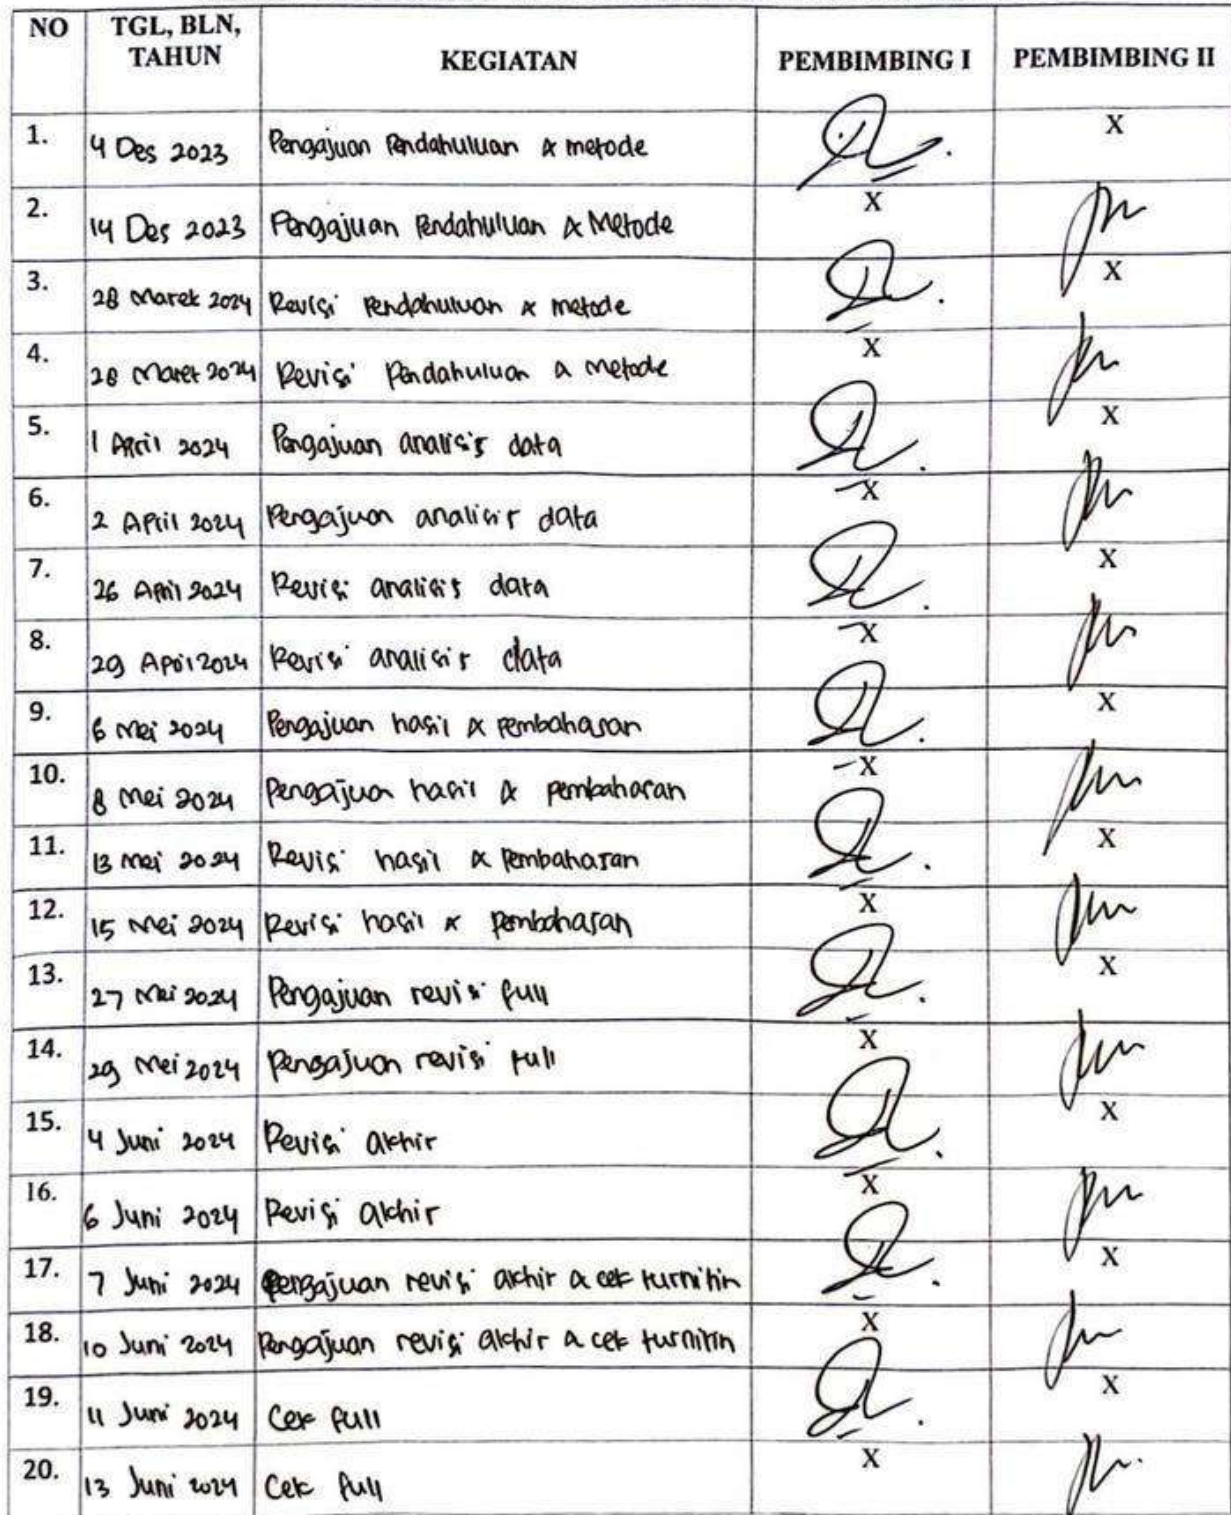 NO TGL, BLN, TAHUN KEGIATAN PEMBIMBING I PEMBIMBING II
1. 4 Des 2023 Pengajuan Pendahuluan & metode X
2. 14 Des 2023 Pengajuan Pendahuluan & Metode X
3. 28 Maret 2024 Revisi Pendahuluan & metode X
4. 28 Maret 2024 Revisi Pendahuluan & metode X
5. 1 April 2024 Pengajuan analisis data X
6. 2 April 2024 Pengajuan analisis data X
7. 26 April 2024 Revisi analisis data X
8. 29 April 2024 Revisi analisis data X
9. 6 Mei 2024 Pengajuan hasil & pembahasan X
10. 8 Mei 2024 Pengajuan hasil & pembahasan X
11. 13 Mei 2024 Revisi hasil & pembahasan X
12. 15 Mei 2024 Revisi hasil & pembahasan X
13. 27 Mei 2024 Pengajuan revisi full X
14. 29 Mei 2024 Pengajuan revisi full X
15. 4 Juni 2024 Revisi akhir X
16. 6 Juni 2024 Revisi akhir X
17. 7 Juni 2024 Pengajuan revisi akhir & cek turnitin X
18. 10 Juni 2024 Pengajuan revisi akhir & cek turnitin X
19. 11 Juni 2024 Cek full X
20. 13 Juni 2024 Cek full X